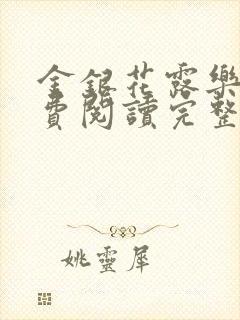 金銀花露樂
費閱讀完整
姚靈犀